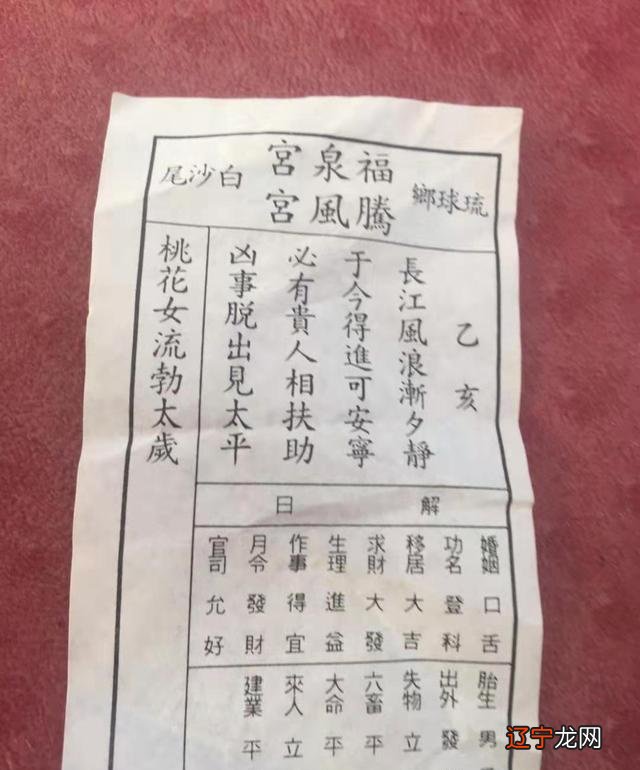 琉球鄉
福泉宮
騰風宮
白沙尾
乙亥
長江風浪漸夕靜
于今得進可安寧
必有貴人相扶助
凶事脱出見太平
桃花女流勃太歲
解日
婚姻口舌
功名登科
移居大吉
求財大發
生理進益
作事得宜
月令發財
官司允好
胎生男
出外發
失物立
六畜平
大命平
來人立
建業平
辽宁龙网